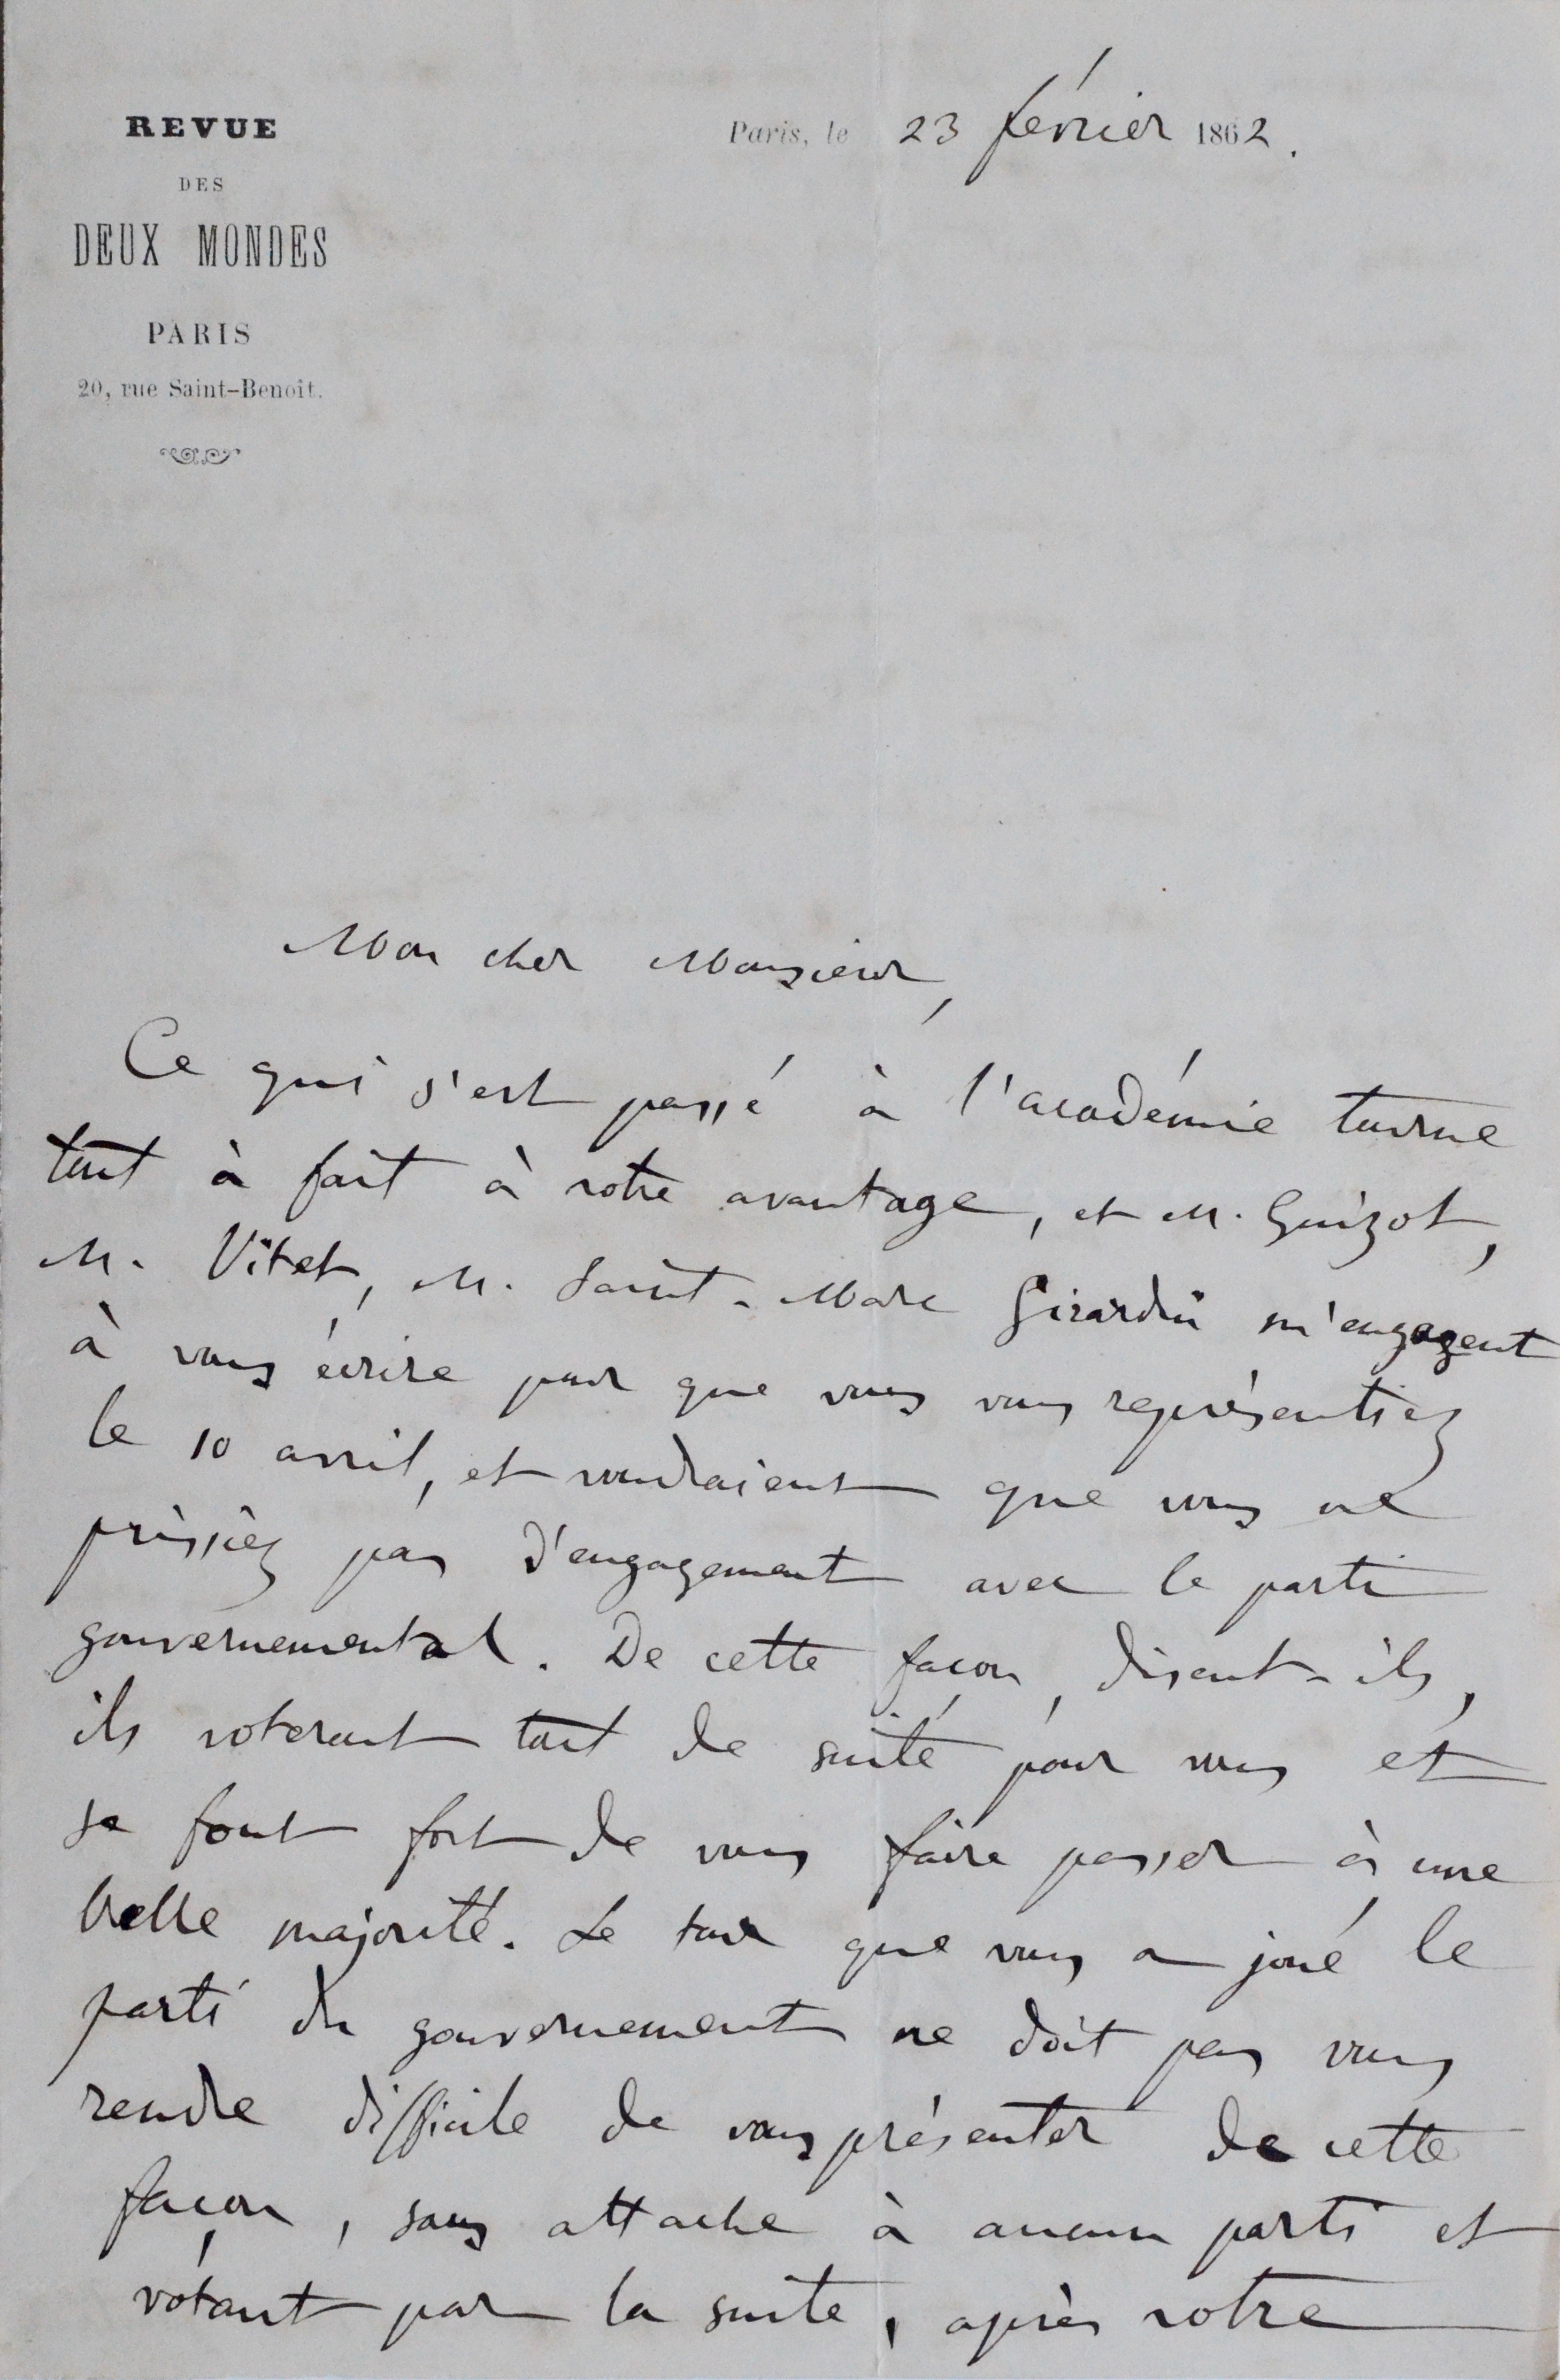 REVUE
DES
DEUX MONDES
PARIS
20, rue Saint-Benoît.
Paris, le 23 février 1862.
Mon cher Monsieur,
Ce qui s'est passé à l'académie tourne
tout à fait à votre avantage, et M. Guizot,
M. Vitet, M. Saint-Marc Girardin m'engagent
à vous écrire pour que vous vous représentiez
le 10 avril, et voudraient que vous ne
prissiez pas d'engagement avec le parti
gouvernemental. De cette façon, disent-ils,
ils voteront tout de suite pour vous et
se font fort de vous faire passer à une
belle majorité. Le tour que vous a joué le
parti du gouvernement ne doit pas vous
rendre difficile de vous présenter de cette
façon, sans attache à aucun parti et
votant par la suite, après votre